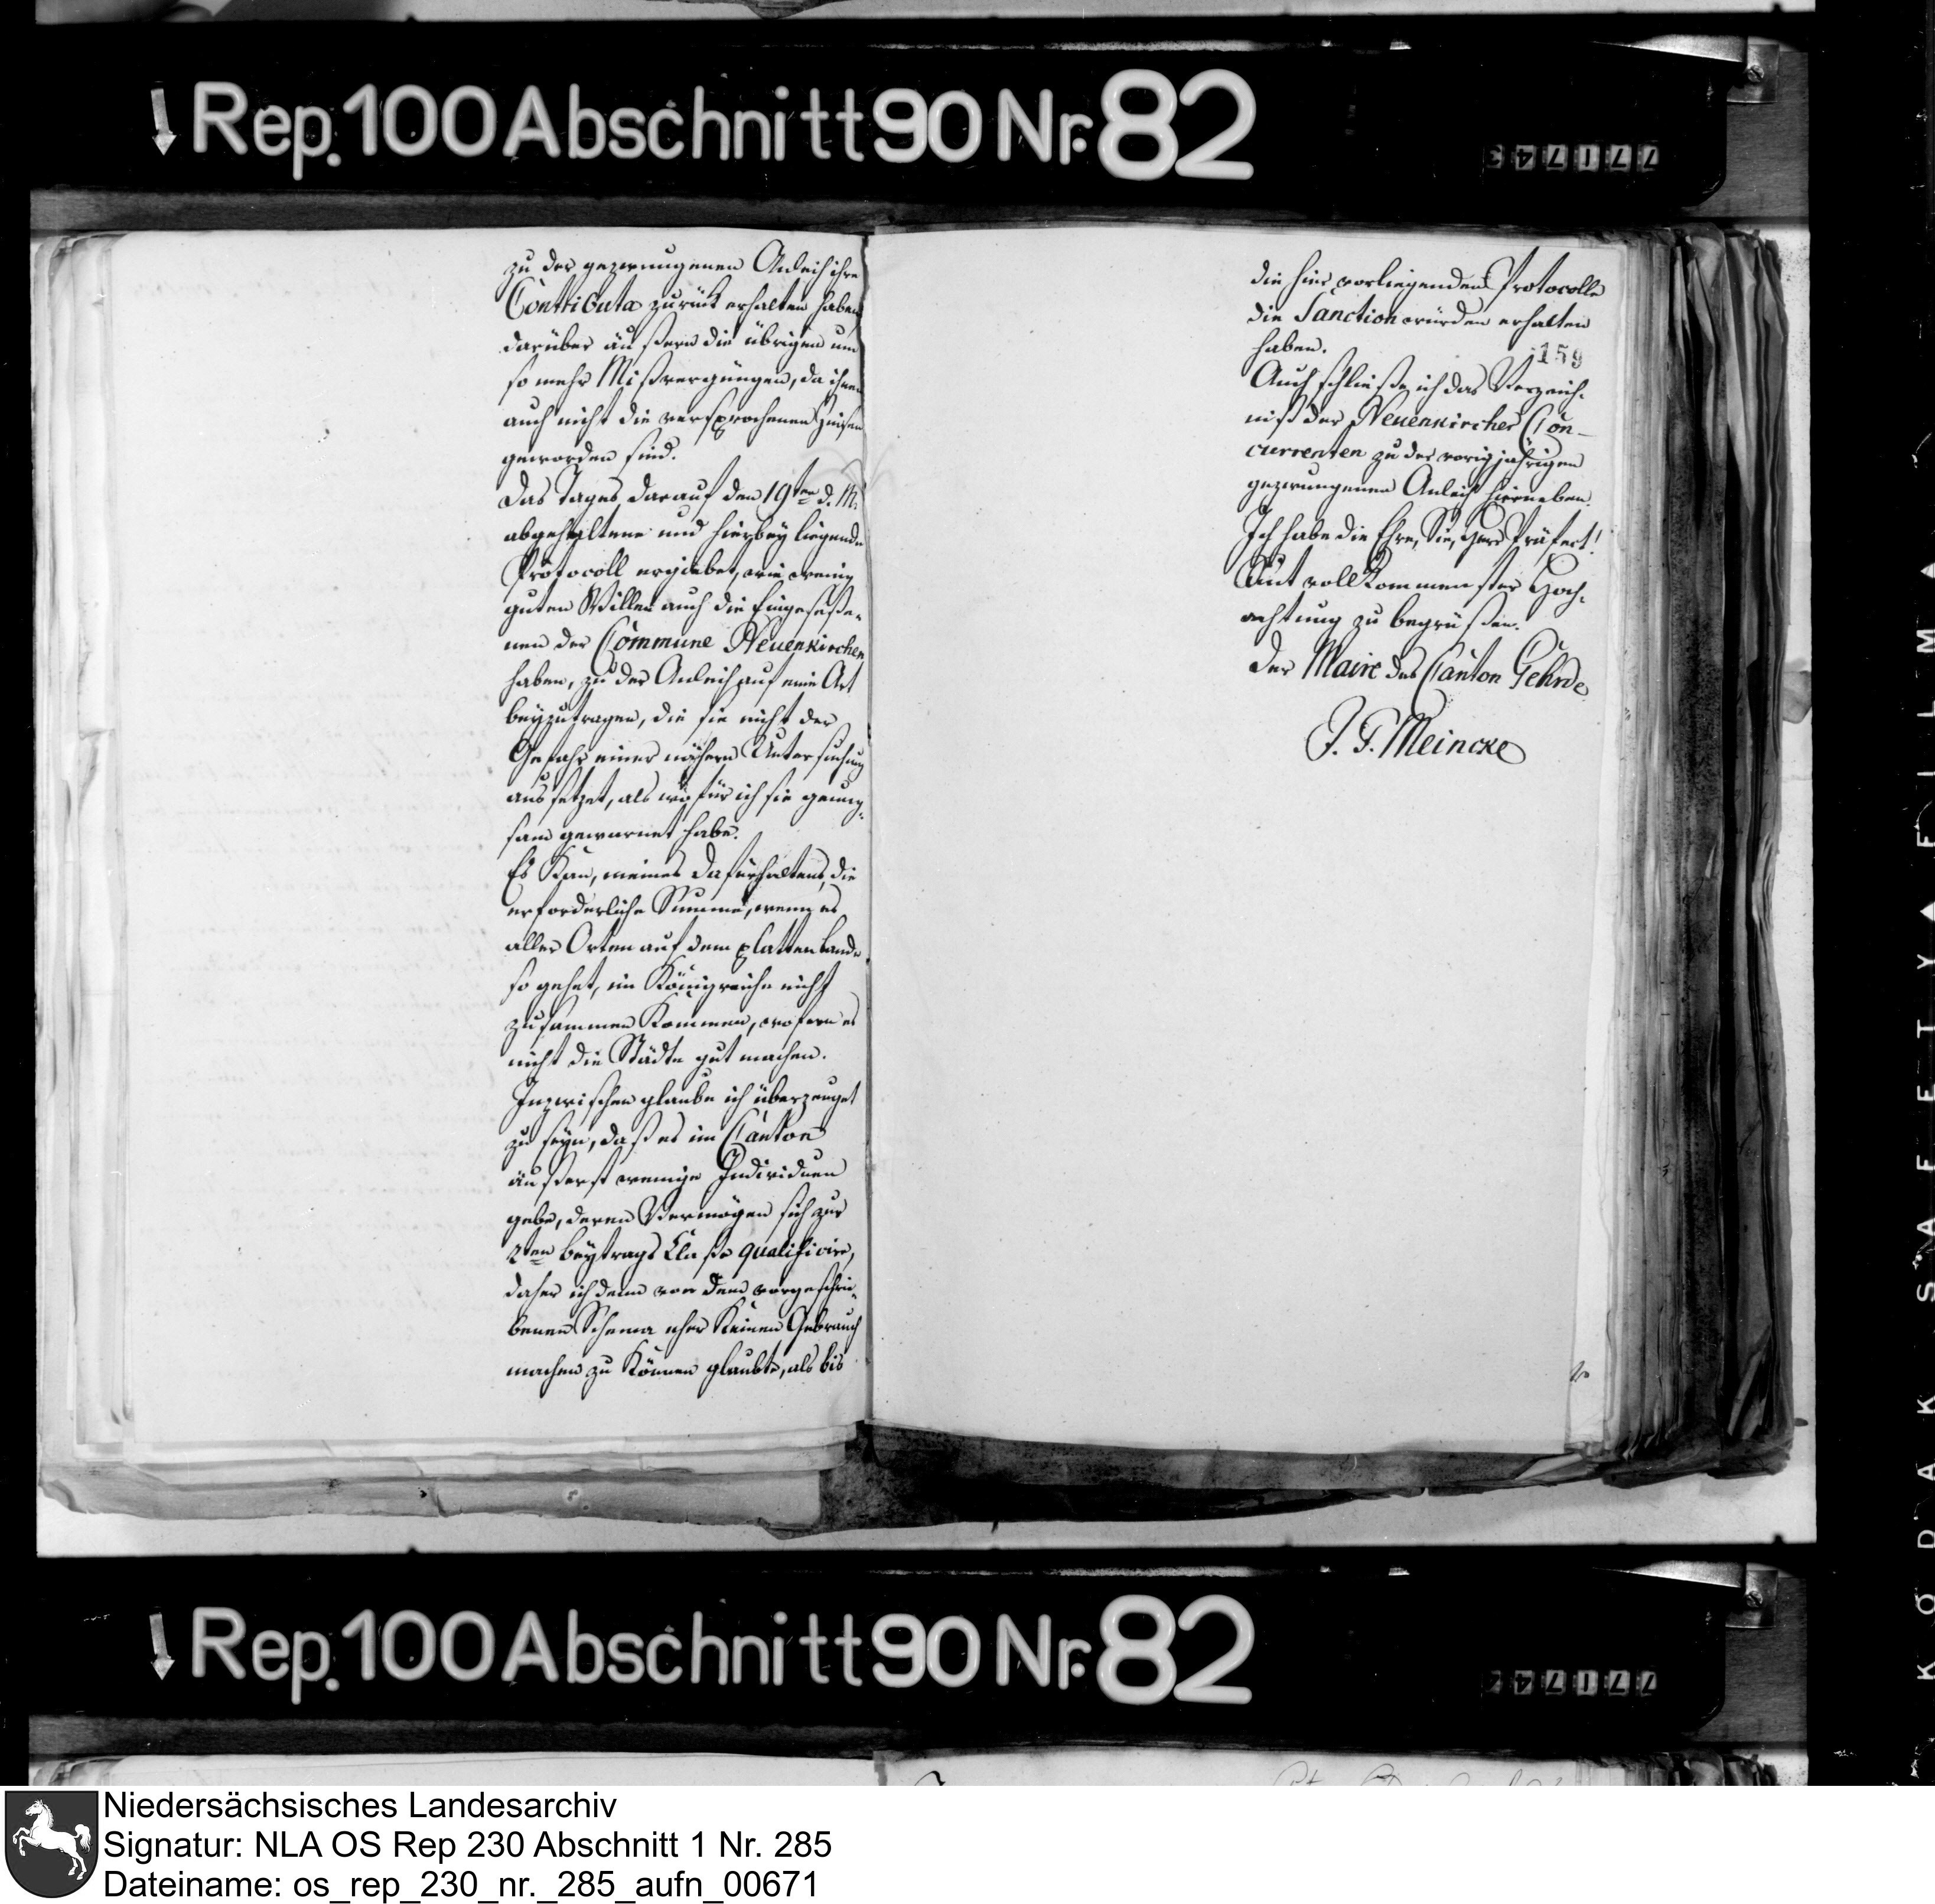 Rep. 100 Abschnitt 90 Nr. 82
771743
zu der gezwungenen Anleih ihre
Contributa zurück erhalten haben
darüber äußern die übrigen um
so mehr Mißvergnügen, da ihnen
auch nicht die versprochenen Zinsen
geworden sind.
Das Tages darauf den 19ten d. M.
abgehaltene und hierbey liegende
Protocoll ergiebet, wie wenig
guten Willen auch die Eingeseße-
nen der Commune Neuenkirchen
haben, zu der Anleih auf eine Art
beyzutragen, die sie nicht der
Gefahr einer nähern Untersuchung
aussetzet, als wofür ich sie genug-
sam gewarnet habe.
Es kan, meines Dafürhaltens, die
erforderliche Summe, wenn es
aller Orten auf dem platten Lande
so gehet, im Königreiche nicht
zusammen kommen, wofern es
nicht die Städte gut machen.
Inzwischen glaube ich überzeuget
zu seyn, daß es im Canton
äußerst wenige Individuen
gebe, deren Vermögen sich zur
2ten Beytrags Claße qualificire,
daher ich denn von dem vorgeschrie-
benen Schema eher keinen Gebrauch
machen zu können glaubte, als bis
die hier vorliegenden Protocolle
die Sanction würden erhalten
haben.
159
Auch schließe ich das Verzeich-
niß der Neuenkircher Con-
currenten zu der vorigjährigen
gezwungenen Anleih hierneben.
Ich habe die Ehre, Sie, Herr Präfect!
Mit vollkommenster Hoch-
achtung zu begrüßen.
Der Maire des Canton Gehrde
J. G. Meincke
Rep. 100 Abschnitt 90 Nr. 82
KODAK SAFETY FILM
Niedersächsisches Landesarchiv
Signatur: NLA OS Rep 230 Abschnitt 1 Nr. 285
Dateiname: os_rep_230_nr._285_aufn_00671